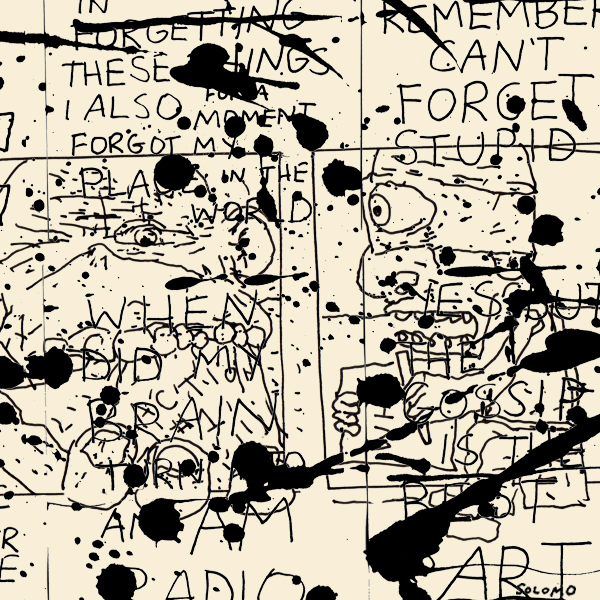 IN
FORGETTING
THESE THINGS
FOR A
I ALSO MOMENT
FORGOT MY
PLACE IN THE
WORLD
WHEN
DID MY
BRAIN
TURN TO
AN AM
RADIO
REMEMBER
CAN'T
FORGET
STUPID
IS THE
BEST
ART
SOLOMO